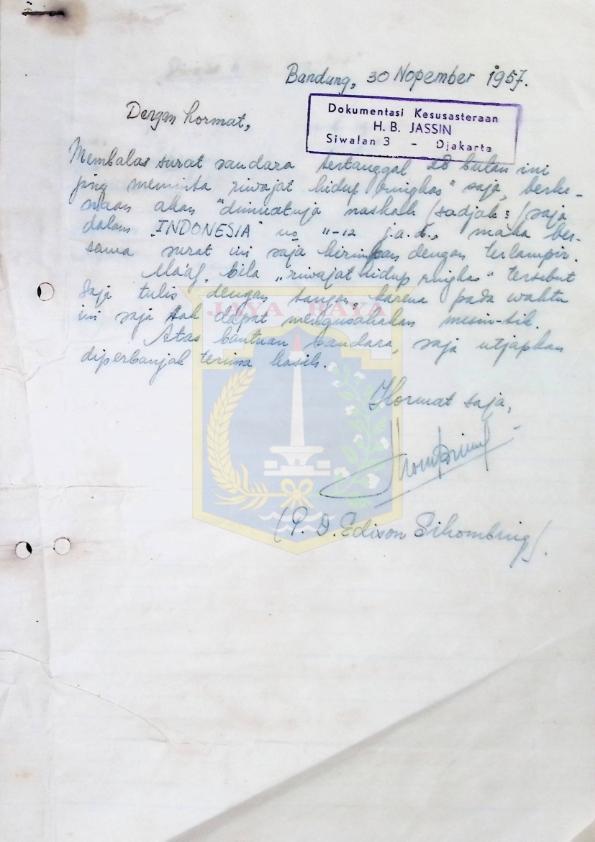 Bandung, 30 Nopember 1957.
Dengan hormat,
Dokumentasi Kesusasteraan
H. B. JASSIN
Siwalan 3 - Djakarta
Membalas surat saudara tertanggal 28 bulan ini
jang meminta "riwajat hidup ringkas" saja, berke-
naan akan "dimuatnja naskah (sadjak2) saja
dalam "INDONESIA" no 11-12 j.a.d., maka ber-
sama surat ini saja kirimkan dengan terlampir.
Maaf, bila "riwajat hidup ringkas" tersebut
saja tulis dengan tangan, karena pada waktu
ini saja tak dapat mengusahakan mesin-tik.
Atas bantuan saudara, saja utjapkan
diperbanjak terima kasih.
JAYA RAYA
Hormat saja,
(P. D. Edison Sihombing).